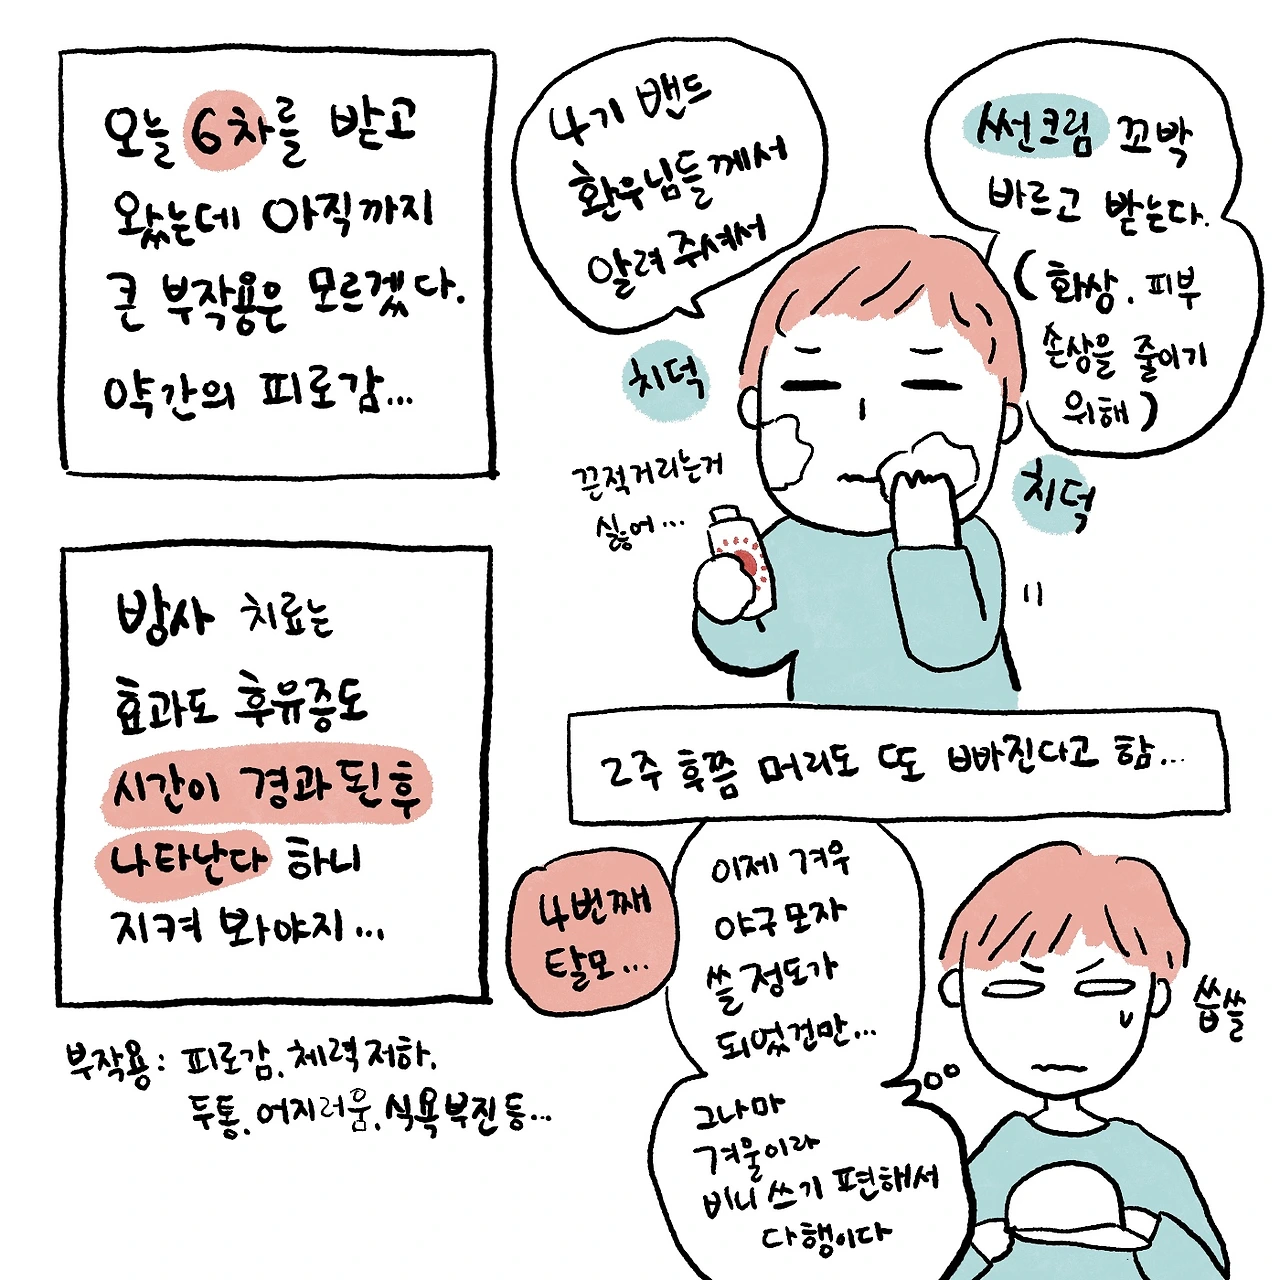 오늘 6차를 받고
왔는데 아직까지
큰 부작용은 모르겠다.
약간의 피로감...
4기 밴드
환우님들께서
알려주셔서
썬크림 꼬박
바르고 받는다.
(화상. 피부
손상을 줄이기
위해)
치덕
끈적거리는거
싫어...
치덕
방사 치료는
효과도 후유증도
시간이 경과된 후
나타난다 하니
지켜 봐야지...
부작용: 피로감, 체력저하,
두통, 어지러움, 식욕부진 등...
2주 후쯤 머리도 또 빠진다고 함...
4번째
탈모...
이제 겨우
야구모자
쓸 정도가
되었건만...
그나마
겨울이라
비니 쓰기 편해서
다행이다
씁쓸